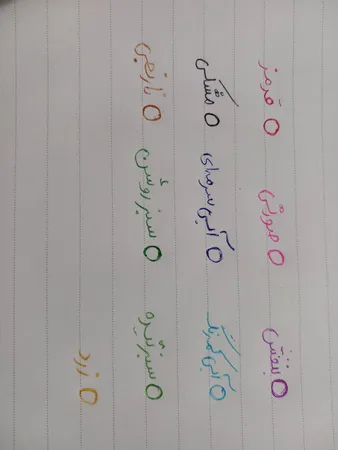 بنفش صورتی قرمز
آبی کمرنگ آبی سرمه‌ای مشکی
سبز تیره سبز روشن نارنجی
زرد